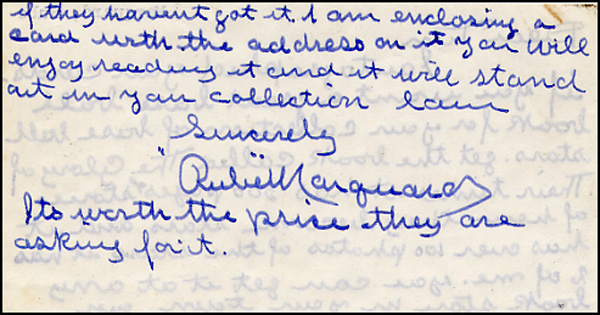 if they havent got it. I am enclosing a
card with the address on it you will
enjoy reading it and it will stand
out in your collection I am
Sincerely
"Rube" Marquard
Its worth the price they are
asking for it.